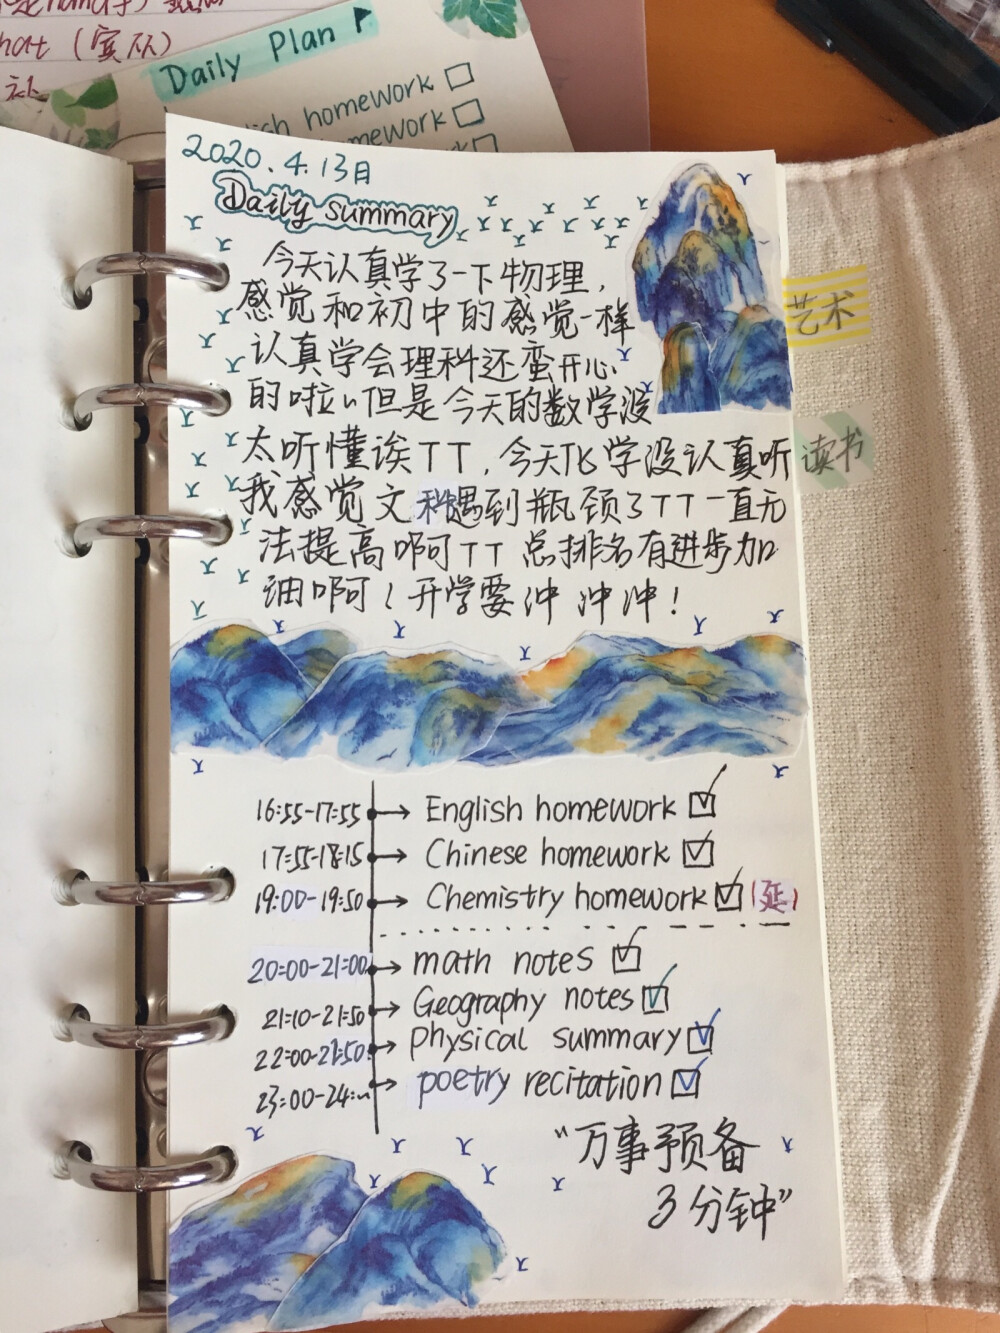 hart (宾从)
补
Daily Plan
lish homework
mework
rk
2020.4.13日
Daily summary
今天认真学了一下物理,
感觉和初中的感觉一样
认真学会理科还蛮开心
的啦~但是今天的数学没
太听懂诶TT,今天化学没认真听
我感觉文科遇到瓶颈了TT一直无
法提高啊啊TT 总排名有进步加
油啊啊~开学要冲 冲冲!
艺术
读书
16:55-17:55 English homework
17:55-18:15 Chinese homework
19:00-19:50 Chemistry homework (延)
20:00-21:00 math notes
21:10-21:50 Geography notes
22:00-21:50 Physical summary
23:00-24:~ poetry recitation
“万事预备
3分钟”